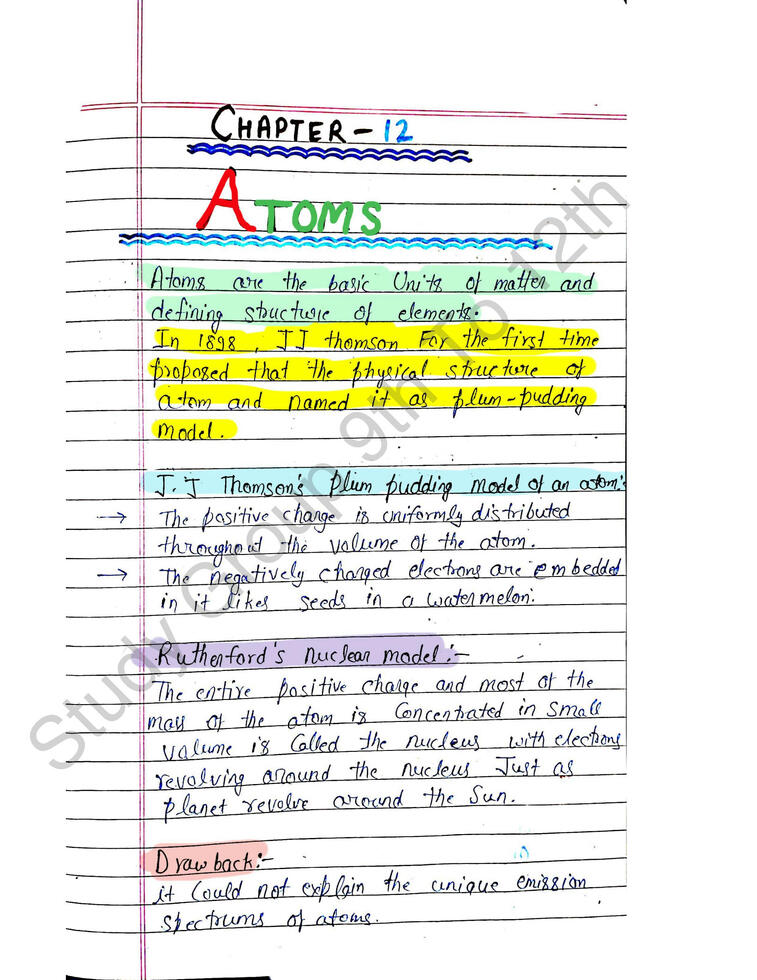 CHAPTER - 12
ATOMS
Atoms are the basic Units of matter and
defining structure of elements.
In 1898, JJ thomson For the first time
proposed that the physical structure of
atom and named it as plum-pudding
model.
J.J Thomson's plum pudding model of an atom:
→ The positive charge is uniformly distributed
throughout the volume of the atom.
→ The negatively charged electrons are embedded
in it likes seeds in a watermelon.
Rutherford's nuclear model:-
The entire positive charge and most of the
mass of the atom is Concentrated in small
volume is Called the nucleus with electrons
revolving around the nucleus Just as
planet revolve around the Sun.
Drawback:-
it Could not explain the unique emission
spectrums of atoms.
Study Group 9th To 12th